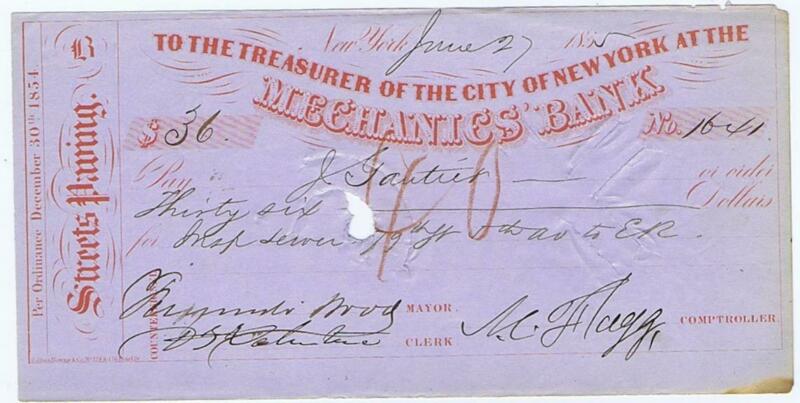 New York June 27 1855
TO THE TREASURER OF THE CITY OF NEW YORK AT THE
MECHANICS' BANK
$ 36. No. 1641
Pay J Gautier or order
Thirty six Dollars
for Insp Sewer 79th St 5th av to E R.
Fernando Wood MAYOR.
COUNTERSIGNED
D T Valentine CLERK
A. C. Flagg, COMPTROLLER.
Per Ordinance December 30th 1854.
Streets Paving. B